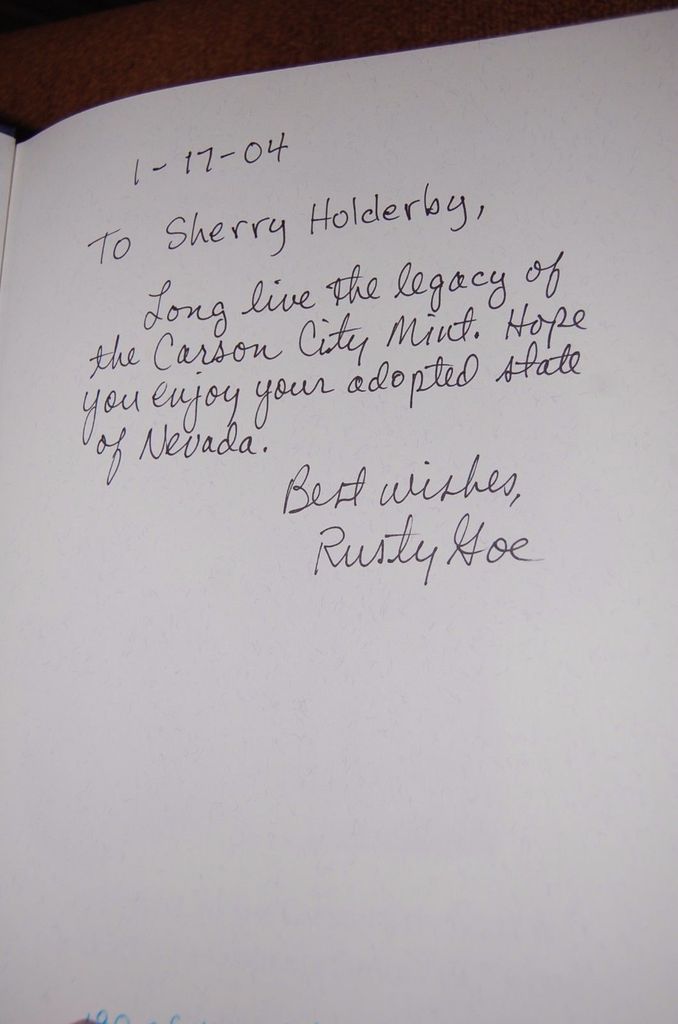 1-17-04
To Sherry Holderby,
Long live the legacy of
the Carson City Mint. Hope
you enjoy your adopted state
of Nevada.
Best wishes,
Rusty Goe